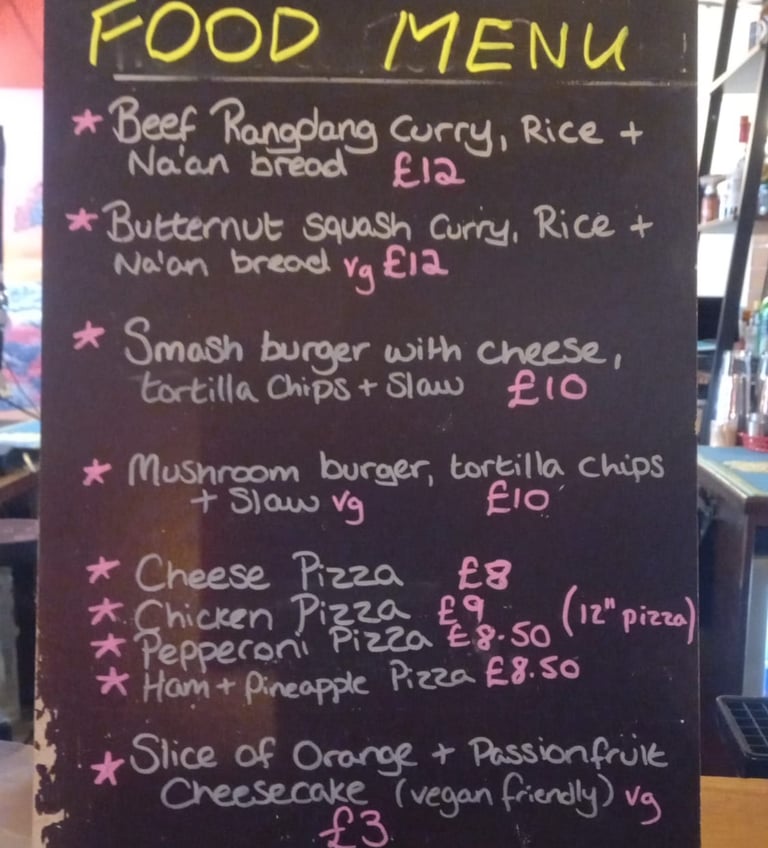 FOOD MENU
* Beef Rangdang Curry, Rice +
Na'an bread £12
* Butternut squash Curry, Rice +
Na'an bread vg £12
* Smash burger with cheese,
tortilla Chips + Slaw £10
* Mushroom burger, tortilla chips
+ Slaw vg £10
* Cheese Pizza £8
* Chicken Pizza £9 (12" pizza)
* Pepperoni Pizza £8.50
* Ham + pineapple Pizza £8.50
* Slice of Orange + Passionfruit
Cheesecake (vegan friendly) vg
£3